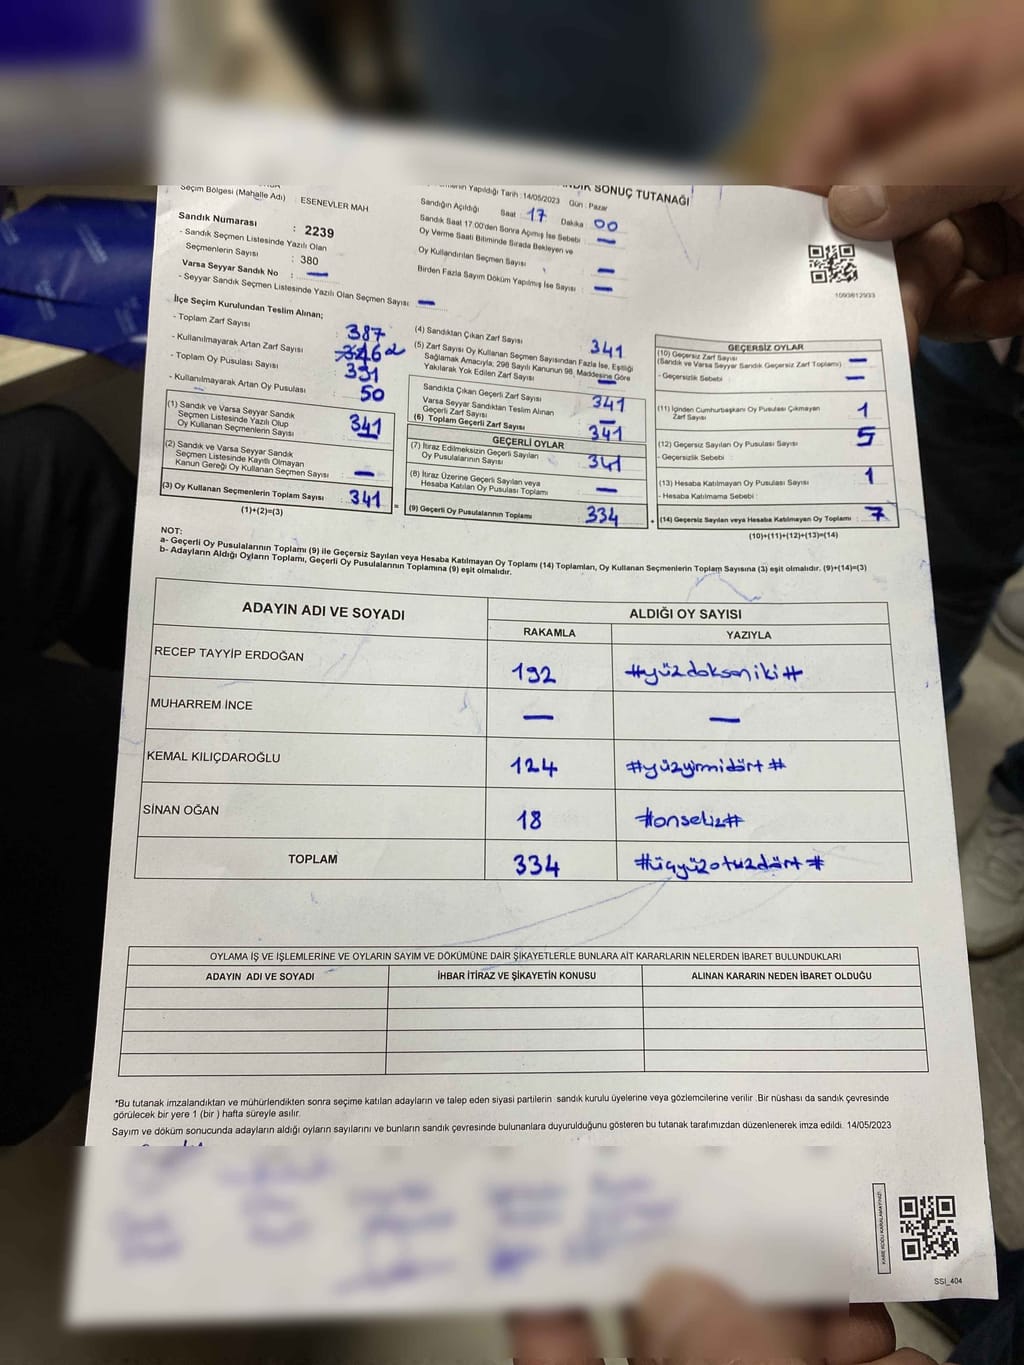 SONUÇ TUTANAĞI
Seçim Bölgesi (Mahalle Adı) : ESENEVLER MAH
Yapıldığı Tarih : 14/05/2023 Gün : Pazar
Sandığın Açıldığı Saat : 17 Dakika 00
Sandık Saat 17:00'den Sonra Açımış İse Sebebi : —
Oy Verme Saati Bitiminde Sırada Bekleyen ve
Oy Kullandırılan Seçmen Sayısı : —
Birden Fazla Sayım Döküm Yapılmış İse Sayısı : —
Sandık Numarası : 2239
- Sandık Seçmen Listesinde Yazılı Olan
Seçmenlerin Sayısı : 380
Varsa Seyyar Sandık No : —
- Seyyar Sandık Seçmen Listesinde Yazılı Olan Seçmen Sayısı : —
1093812933
İlçe Seçim Kurulundan Teslim Alınan;
- Toplam Zarf Sayısı 387
- Kullanılmayarak Artan Zarf Sayısı
- Toplam Oy Pusulası Sayısı
- Kullanılmayarak Artan Oy Pusulası 50
(1) Sandık ve Varsa Seyyar Sandık
Seçmen Listesinde Yazılı Olup
Oy Kullanan Seçmenlerin Sayısı 341
(2) Sandık ve Varsa Seyyar Sandık
Seçmen Listesinde Kayıtlı Olmayan
Kanun Gereği Oy Kullanan Seçmen Sayısı —
(3) Oy Kullanan Seçmenlerin Toplam Sayısı 341
(1)+(2)=(3)
(4) Sandıktan Çıkan Zarf Sayısı 341
(5) Zarf Sayısı Oy Kullanan Seçmen Sayısından Fazla İse, Eşitliği
Sağlamak Amacıyla; 298 Sayılı Kanunun 98. Maddesine Göre
Yakılarak Yok Edilen Zarf Sayısı —
Sandıkta Çıkan Geçerli Zarf Sayısı 341
Varsa Seyyar Sandıktan Teslim Alınan
Geçerli Zarf Sayısı —
(6) Toplam Geçerli Zarf Sayısı 341
GEÇERLİ OYLAR
(7) İtiraz Edilmeksizin Geçerli Sayılan
Oy Pusulalarının Sayısı 341
(8) İtiraz Üzerine Geçerli Sayılan veya
Hesaba Katılan Oy Pusulası Toplamı —
= (9) Geçerli Oy Pusulalarının Toplamı 334
GEÇERSİZ OYLAR
(10) Geçersiz Zarf Sayısı
(Sandık ve Varsa Seyyar Sandık Geçersiz Zarf Toplamı) —
- Geçersizlik Sebebi : —
(11) İçinden Cumhurbaşkanı Oy Pusulası Çıkmayan
Zarf Sayısı 1
(12) Geçersiz Sayılan Oy Pusulası Sayısı 5
- Geçersizlik Sebebi :
(13) Hesaba Katılmayan Oy Pusulası Sayısı 1
- Hesaba Katılmama Sebebi :
+ (14) Geçersiz Sayılan veya Hesaba Katılmayan Oy Toplamı : 7
(10)+(11)+(12)+(13)=(14)
NOT:
a- Geçerli Oy Pusulalarının Toplamı (9) ile Geçersiz Sayılan veya Hesaba Katılmayan Oy Toplamı (14) Toplamları, Oy Kullanan Seçmenlerin Toplam Sayısına (3) eşit olmalıdır. (9)+(14)=(3)
b- Adayların Aldığı Oyların Toplamı, Geçerli Oy Pusulalarının Toplamına (9) eşit olmalıdır.
ADAYIN ADI VE SOYADI ALDIĞI OY SAYISI
RAKAMLA YAZIYLA
RECEP TAYYİP ERDOĞAN 192 #yüzdoksaniki#
MUHARREM İNCE — —
KEMAL KILIÇDAROĞLU 124 #yüzyirmidört#
SİNAN OĞAN 18 #onsekiz#
TOPLAM 334 #üçyüzotuzdört#
OYLAMA İŞ VE İŞLEMLERİNE VE OYLARIN SAYIM VE DÖKÜMÜNE DAİR ŞİKAYETLERLE BUNLARA AİT KARARLARIN NELERDEN İBARET BULUNDUKLARI
ADAYIN ADI VE SOYADI İHBAR İTİRAZ VE ŞİKAYETİN KONUSU ALINAN KARARIN NEDEN İBARET OLDUĞU
*Bu tutanak imzalandıktan ve mühürlendikten sonra seçime katılan adayların ve talep eden siyasi partilerin sandık kurulu üyelerine veya gözlemcilerine verilir .Bir nüshası da sandık çevresinde
görülecek bir yere 1 (bir ) hafta süreyle asılır.
Sayım ve döküm sonucunda adayların aldığı oyların sayılarını ve bunların sandık çevresinde bulunanlara duyurulduğunu gösteren bu tutanak tarafımızdan düzenlenerek imza edildi. 14/05/2023
KARE KODU KARALAMAYINIZ!
SSI_404